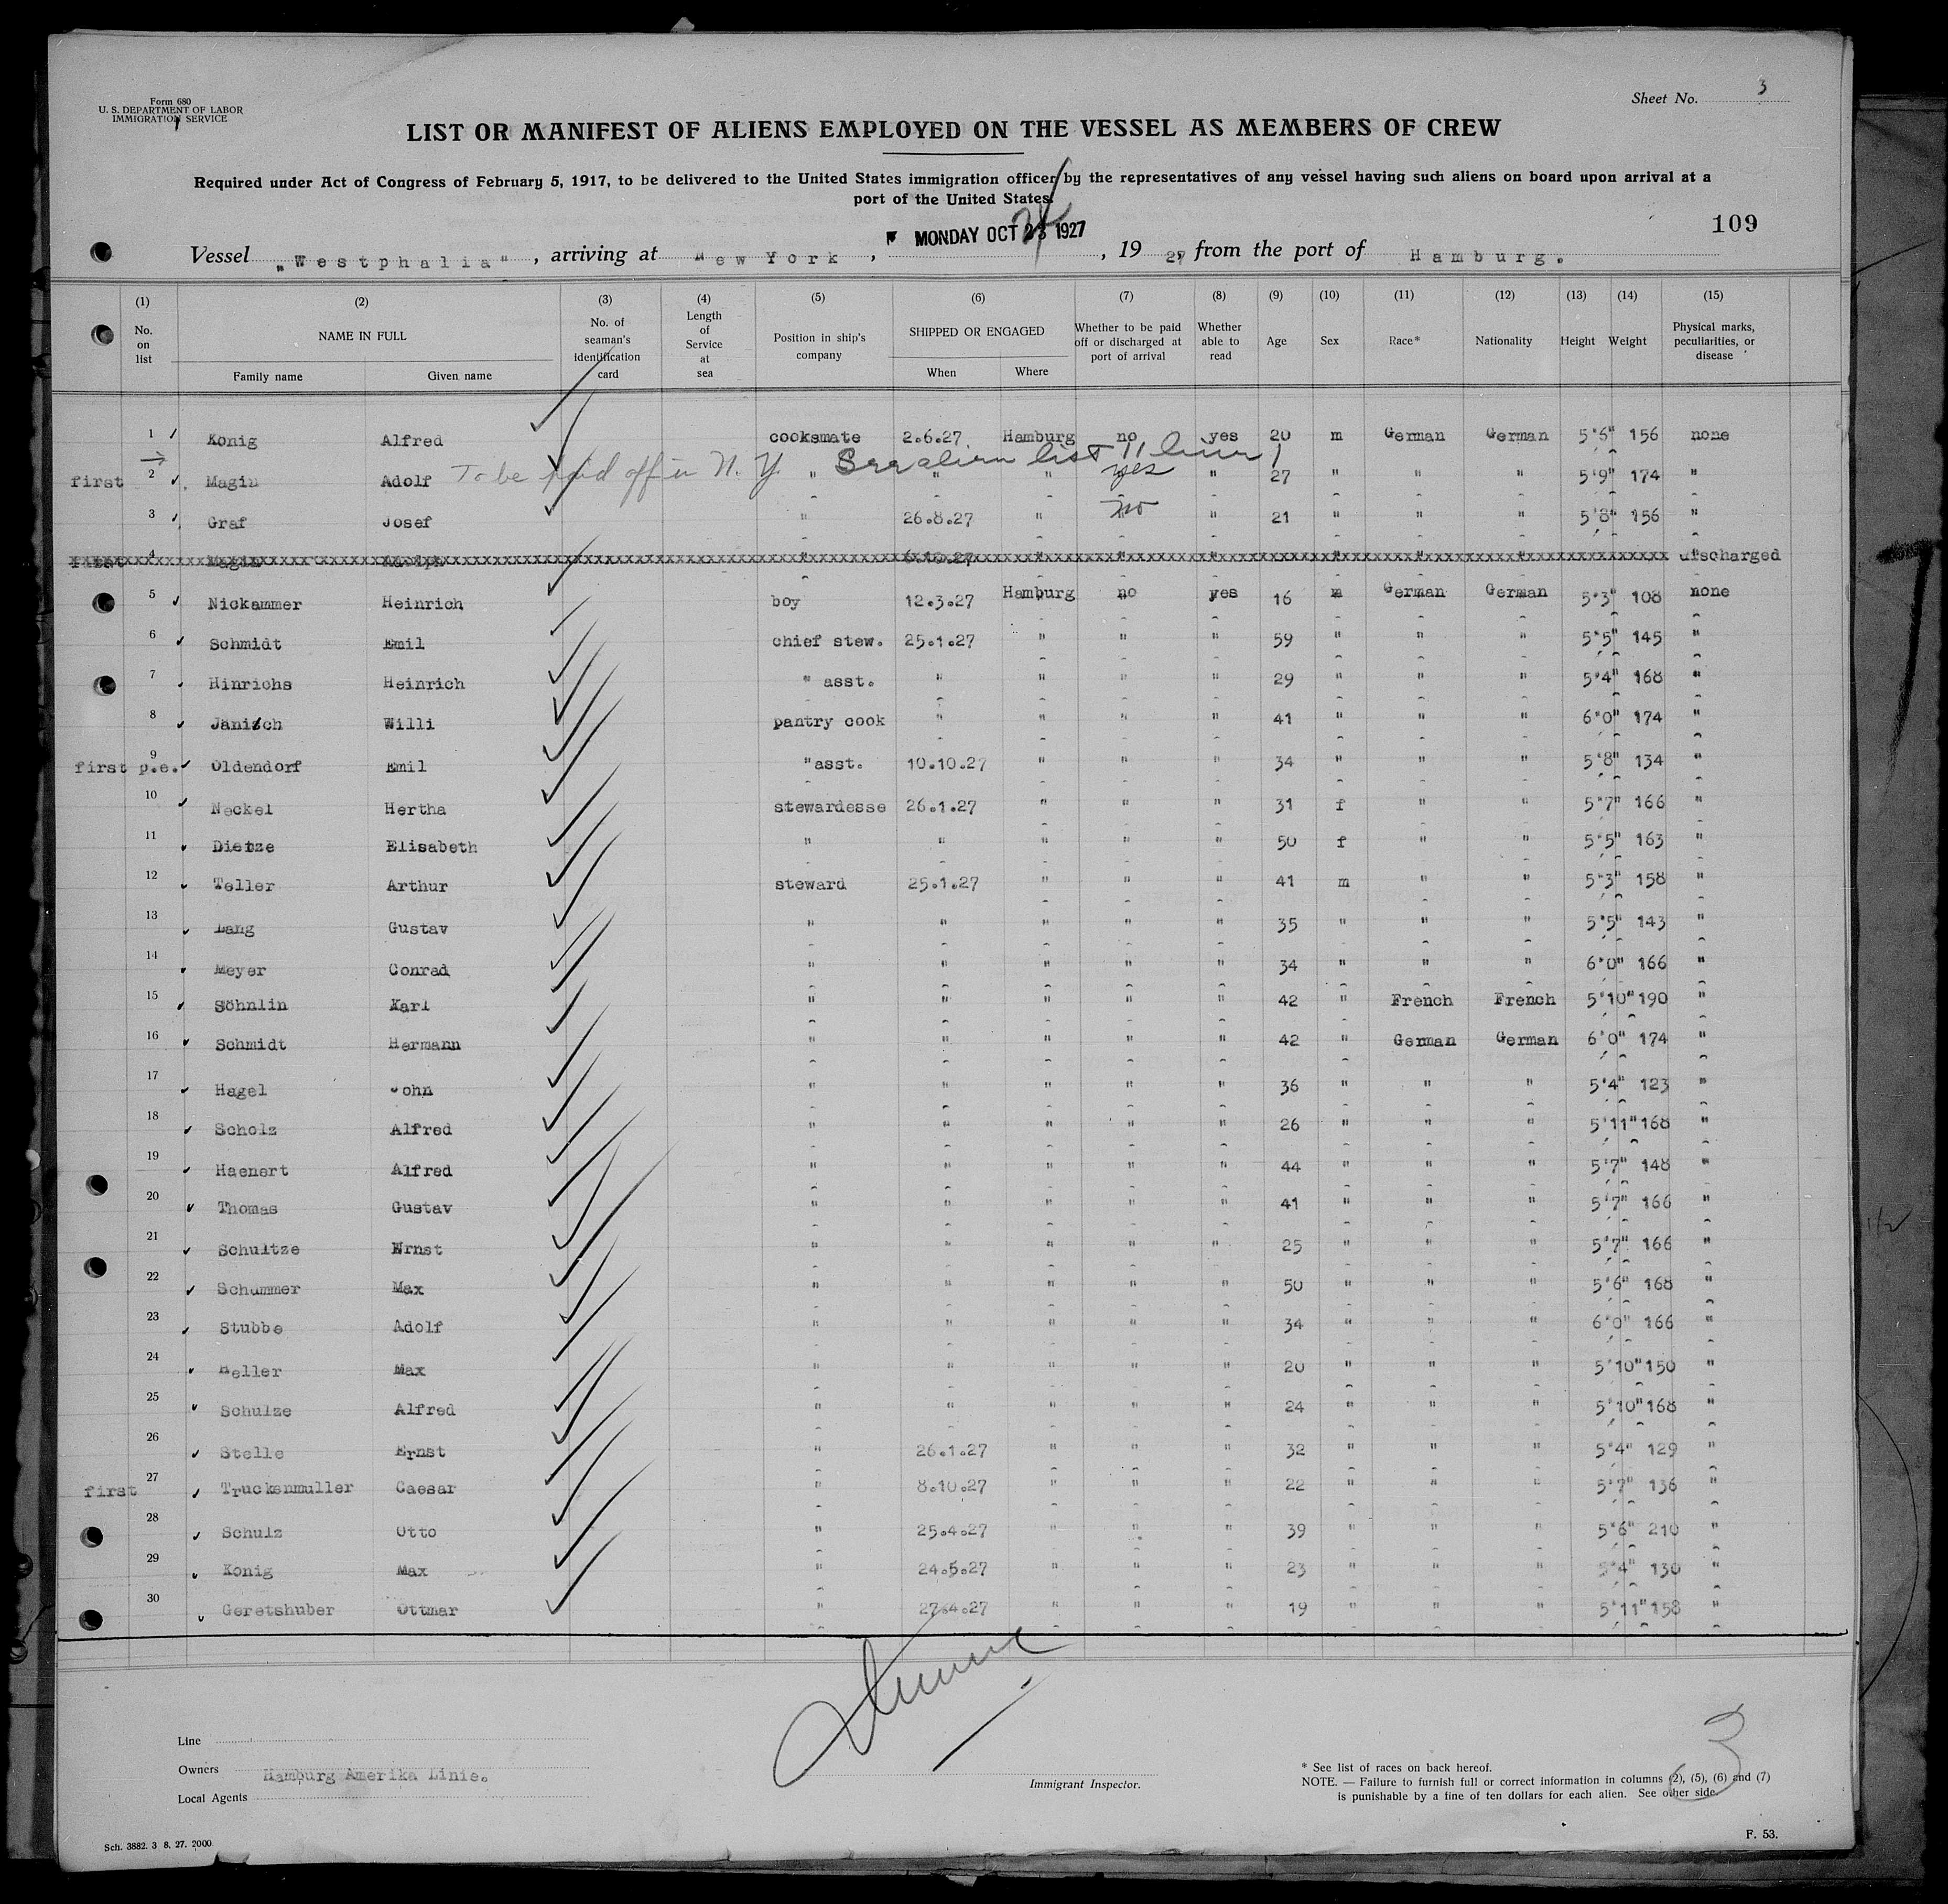 Form 680
U. S. DEPARTMENT OF LABOR
IMMIGRATION SERVICE
Sheet No. 3
LIST OR MANIFEST OF ALIENS EMPLOYED ON THE VESSEL AS MEMBERS OF CREW
Required under Act of Congress of February 5, 1917, to be delivered to the United States immigration officer by the representatives of any vessel having such aliens on board upon arrival at a
port of the United States.
109
MONDAY OCT 24 1927
Vessel "Westphalia", arriving at New York, 1927 from the port of Hamburg.
(1) (2) (3) (4) (5) (6) (7) (8) (9) (10) (11) (12) (13) (14) (15)
No. on list NAME IN FULL No. of seaman's identification card Length of Service at sea Position in ship's company SHIPPED OR ENGAGED Whether to be paid off or discharged at port of arrival Whether able to read Age Sex Race* Nationality Height Weight Physical marks, peculiarities, or disease
Family name Given name When Where
1 Konig Alfred cooksmate 2.6.27. Hamburg no yes 20 m German German 5'6" 156 none
To be paid off in N.Y. See alien list 11 line 1
first 2 Magin Adolf " " " yes " 27 " " " 5'9" 174 "
3 Graf Josef " 26.8.27 " no " 21 " " " 5'8" 156 "
first 4 Magin Adolph " 6.10.27 " " " " " " " discharged
5 Nickammer Heinrich boy 12.3.27 Hamburg no yes 16 m German German 5'3" 108 none
6 Schmidt Emil chief stew. 25.1.27 " " " 59 " " " 5'5" 145 "
7 Hinrichs Heinrich " asst. " " " " 29 " " " 5'4" 168 "
8 Janisch Willi pantry cook " " " " 41 " " " 6'0" 174 "
first p.e. 9 Oldendorf Emil "asst. 10.10.27 " " " 34 " " " 5'8" 134 "
10 Neckel Hertha stewardesse 26.1.27 " " " 31 f " " 5'7" 166 "
11 Dietze Elisabeth " " " " " 50 f " " 5'5" 163 "
12 Teller Arthur steward 25.1.27 " " " 41 m " " 5'3" 158 "
13 Lang Gustav " " " " " 35 " " " 5'5" 143 "
14 Meyer Conrad " " " " " 34 " " " 6'0" 166 "
15 Söhnlin Karl " " " " " 42 " French French 5'10" 190 "
16 Schmidt Hermann " " " " " 42 " German German 6'0" 174 "
17 Hagel John " " " " " 36 " " " 5'4" 123 "
18 Scholz Alfred " " " " " 26 " " " 5'11" 168 "
19 Haenert Alfred " " " " " 44 " " " 5'7" 148 "
20 Thomas Gustav " " " " " 41 " " " 5'7" 166 "
21 Schultze Ernst " " " " " 25 " " " 5'7" 166 "
22 Schummer Max " " " " " 50 " " " 5'6" 168 "
23 Stubbe Adolf " " " " " 34 " " " 6'0" 166 "
24 Heller Max " " " " " 20 " " " 5'10" 150 "
25 Schulze Alfred " " " " " 24 " " " 5'10" 168 "
26 Stelle Ernst " 26.1.27 " " " 32 " " " 5'4" 129 "
first 27 Truckenmuller Caesar " 8.10.27 " " " 22 " " " 5'7" 136 "
28 Schulz Otto " 25.4.27 " " " 39 " " " 5'6" 210 "
29 Konig Max " 24.5.27 " " " 23 " " " 5'4" 130 "
30 Geretshuber Ottmar " 27.4.27 " " " 19 " " " 5'11" 158 "
Line
Owners Hamburg Amerika Linie.
Local Agents
Immigrant Inspector.
* See list of races on back hereof.
NOTE. — Failure to furnish full or correct information in columns (2), (5), (6) and (7)
is punishable by a fine of ten dollars for each alien. See other side.
3
Sch. 3882. 3 8. 27. 2000
F. 53.